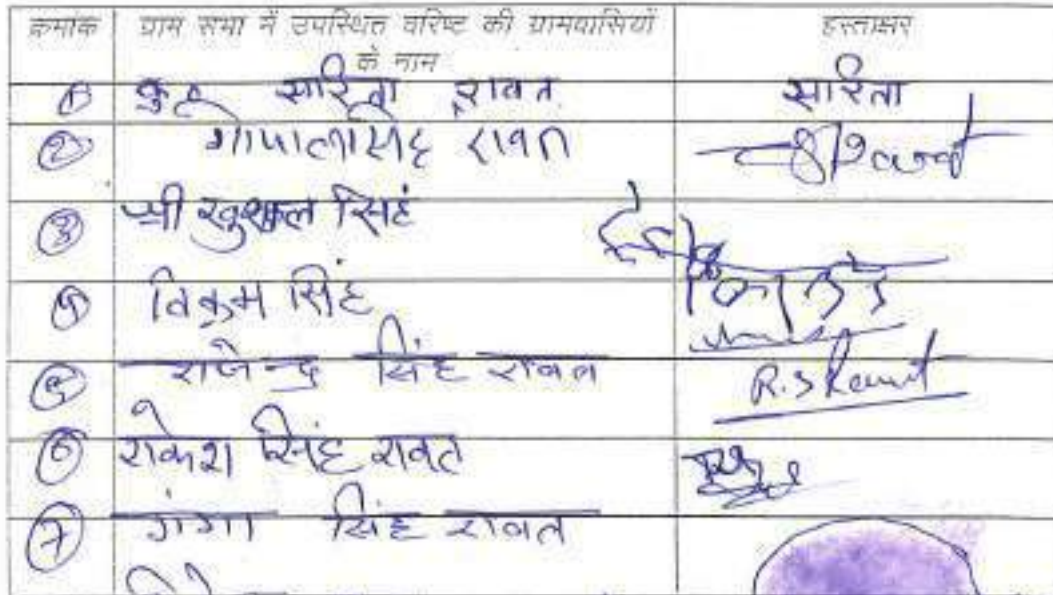 क्रमांक ग्राम सभा में उपस्थित वरिष्ट की ग्रामवासियों के नाम हस्ताक्षर
1 कु0 सारिता रावत सारिता
2 गोपालसिंह रावत
3 श्री खुशाल सिहं
4 विक्रम सिंह
5 राजेन्द्र सिंह रावत R.S Rawat
6 राकेश सिंह रावत
7 गंगा सिंह रावत